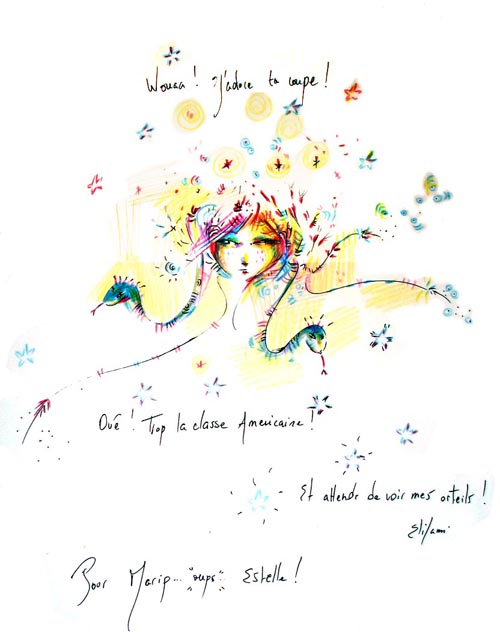 Wouaa ! J'adore ta coupe !
Oué ! Trop la classe Americaine !
Et attendr de voir mes orteils !
Pour Marip... "oups" Estelle !